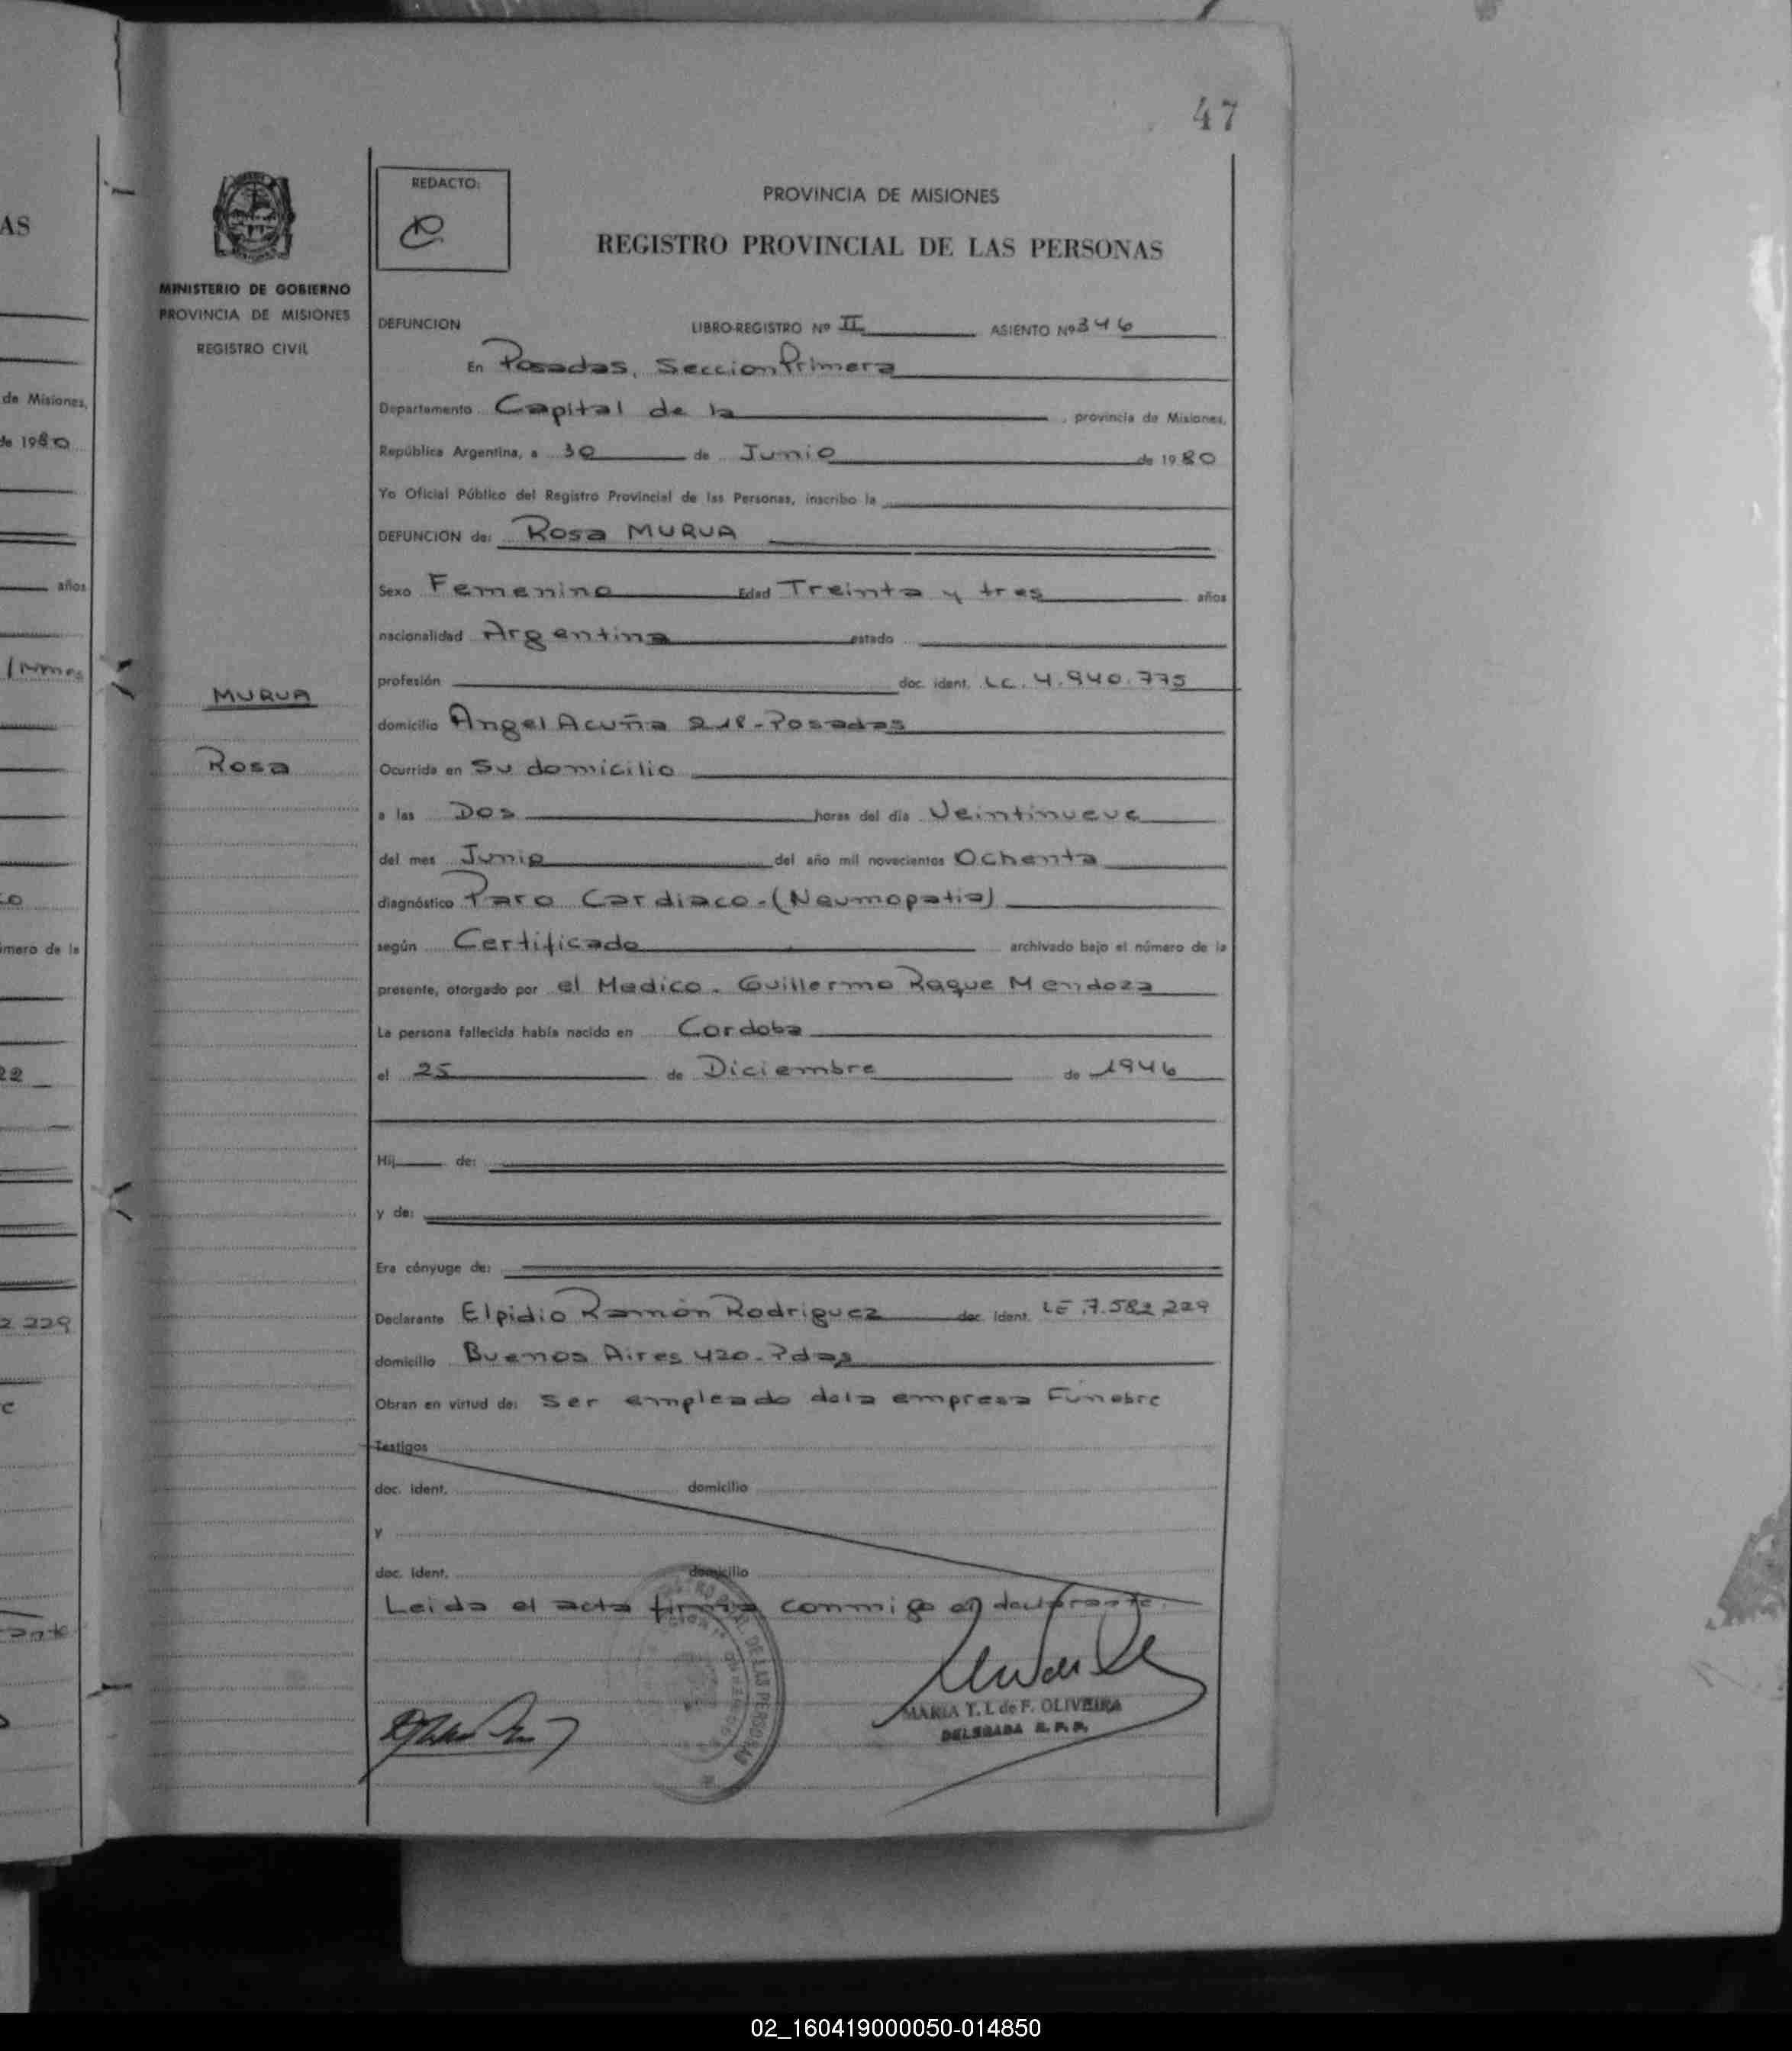 47
AS
de Misiones,
de 1980
años
mero de la
22
2 229
MINISTERIO DE GOBIERNO
PROVINCIA DE MISIONES
REGISTRO CIVIL
MURUA
Rosa
REDACTO:
PROVINCIA DE MISIONES
REGISTRO PROVINCIAL DE LAS PERSONAS
DEFUNCION LIBRO-REGISTRO Nº II ASIENTO Nº 346
En Posadas, Seccion Primera
Departamento Capital de la , provincia de Misiones,
República Argentina, a 30 de Junio de 1980
Yo Oficial Público del Registro Provincial de las Personas, inscribo la
DEFUNCION de: Rosa MURUA
Sexo Femenino Edad Treinta y tres años
nacionalidad Argentina estado
profesión doc. ident. LC. 4.940.775
domicilio Angel Acuña 218-Posadas
Ocurrida en Su domicilio
a las Dos horas del día Veintinueve
del mes Junio del año mil novecientos Ochenta
diagnóstico Paro Cardiaco-(Neumopatia)
según Certificado archivado bajo el número de la
presente, otorgado por el Medico. Guillermo Raque Mendoza
La persona fallecida había nacido en Cordoba
el 25 de Diciembre de 1946
Hij de:
y de:
Era cónyuge de:
Declarante Elpidio Ramón Rodriguez doc. ident. LE.7.582.229
domicilio Buenos Aires 420-Pdas
Obran en virtud de: Ser empleado dela empresa Funebre
Testigos
doc. ident. domicilio
y
doc. ident. domicilio
Leida el acta firma conmigo el declarante.
DE LAS PERSONAS
MARIA T. I. de F. OLIVEIRA
DELEGADA R. P. P.
02_160419000050-014850